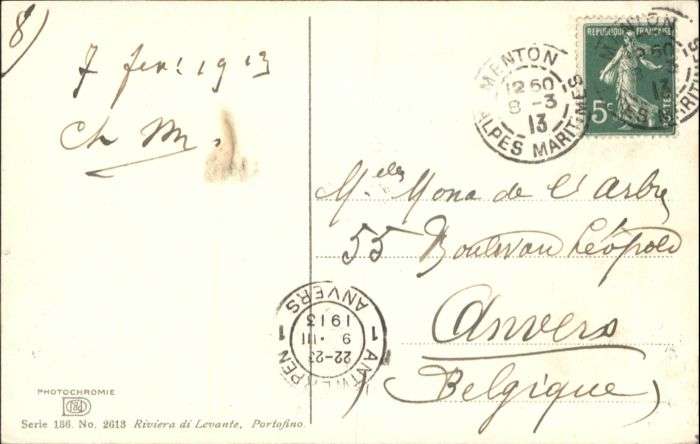 8)
7 fev. 1913
Ch M.
MENTON
12 50
8 - 3
13
ALPES MARITIMES
REPUBLIQUE FRANÇAISE
5c
POSTES
MENTON
50
13
Melle Mona de l'Arbre
55 Boulevou Léopold
Anvers
(Belgique)
1 ANTWERPEN 1
22-23
9 · III
1913
ANVERS
PHOTOCHROMIE
Serie 186. No. 2613 Riviera di Levante. Portofino.